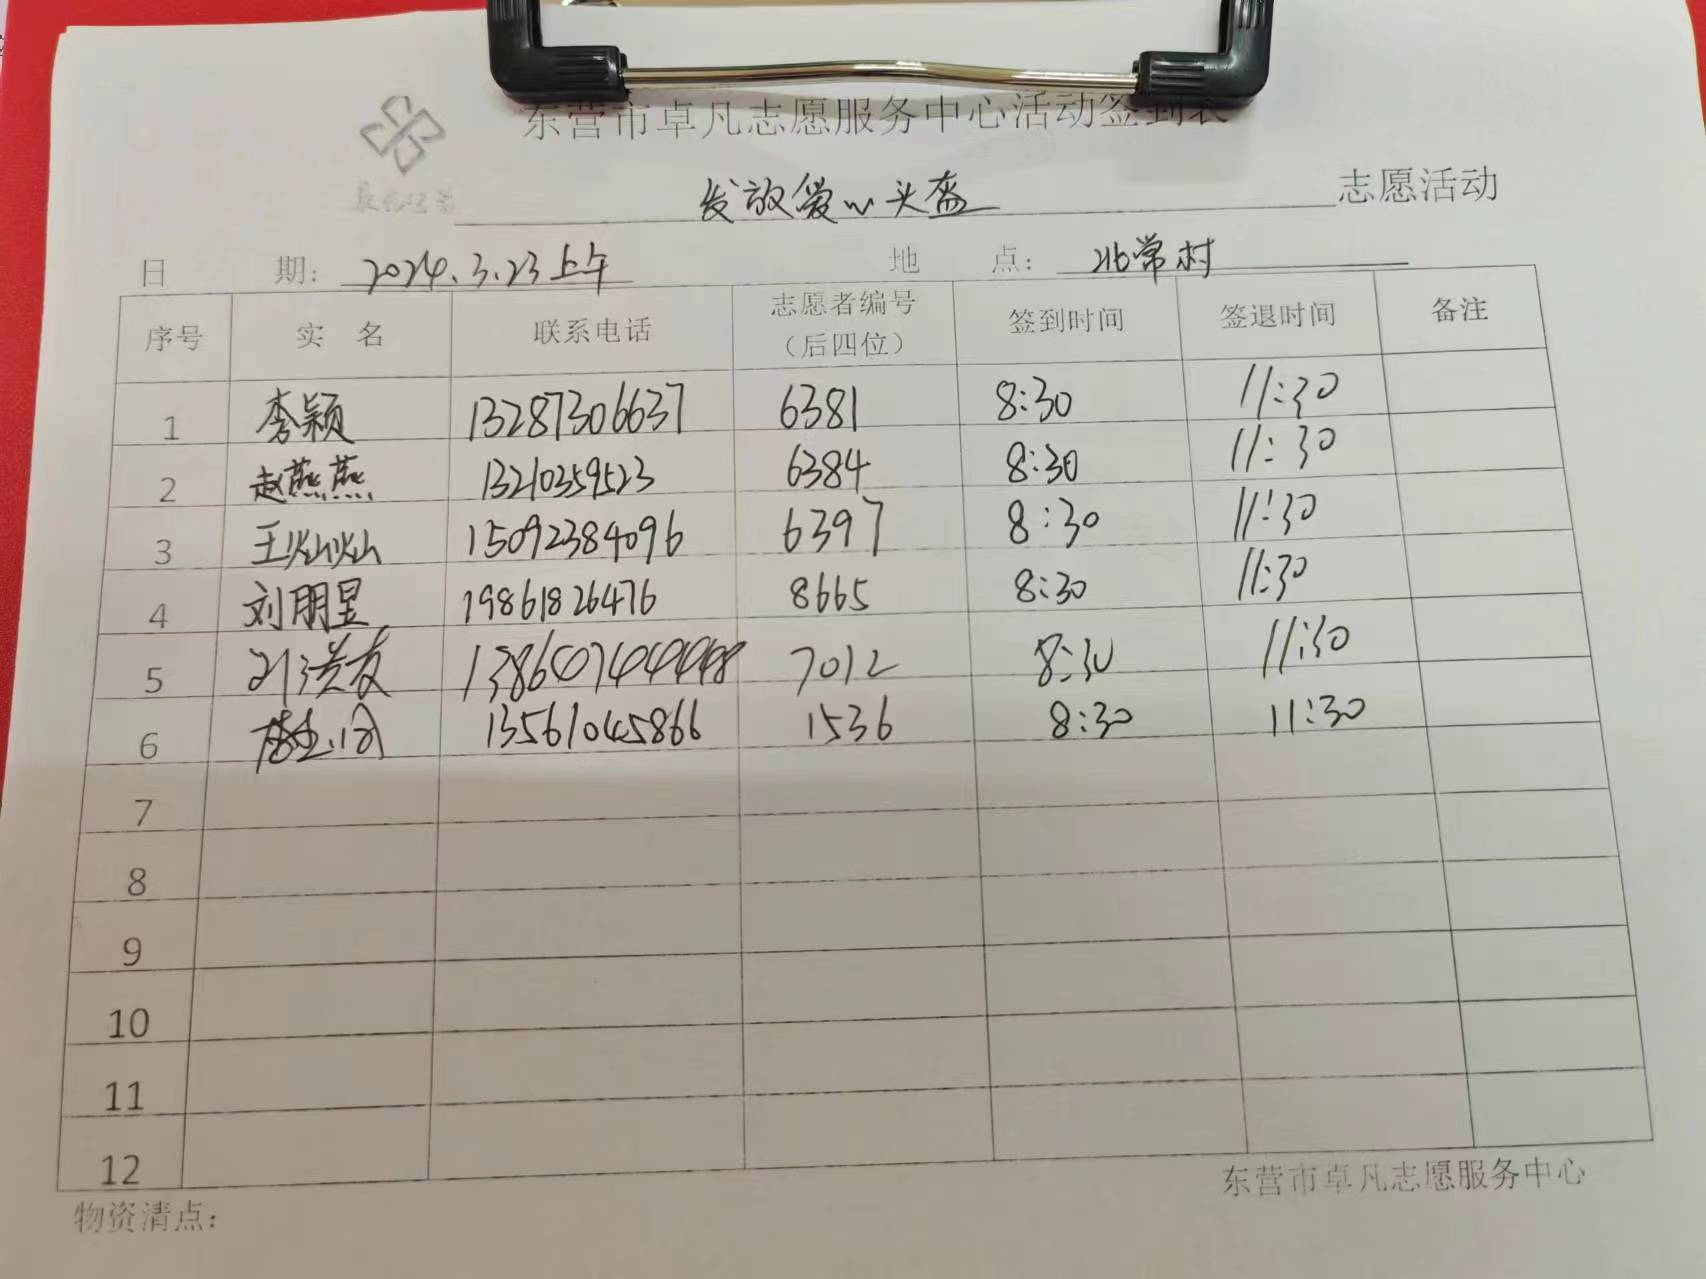 东营市卓凡志愿服务中心活动签到表
发放爱心头盔 志愿活动
日 期： 2024.3.23上午 地 点： 北常村
序号 实 名 联系电话 志愿者编号（后四位） 签到时间 签退时间 备注
1 李颖 13287306637 6381 8:30 11:30
2 赵燕燕 13210359523 6384 8:30 11:30
3 王灿灿 15092384096 6397 8:30 11:30
4 刘朋昱 19861826476 8665 8:30 11:30
5 刘洪友 7012 8:30 11:30
6 13561045866 1536 8:30 11:30
7
8
9
10
11
12
东营市卓凡志愿服务中心
物资清点：